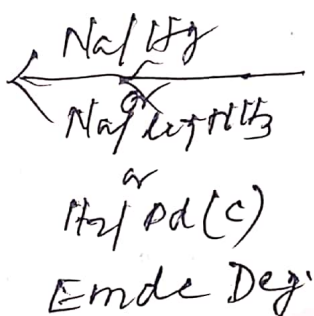 Na/Hg
or
Na/liq NH3
or
H2/Pd(C)
Emde Deg.